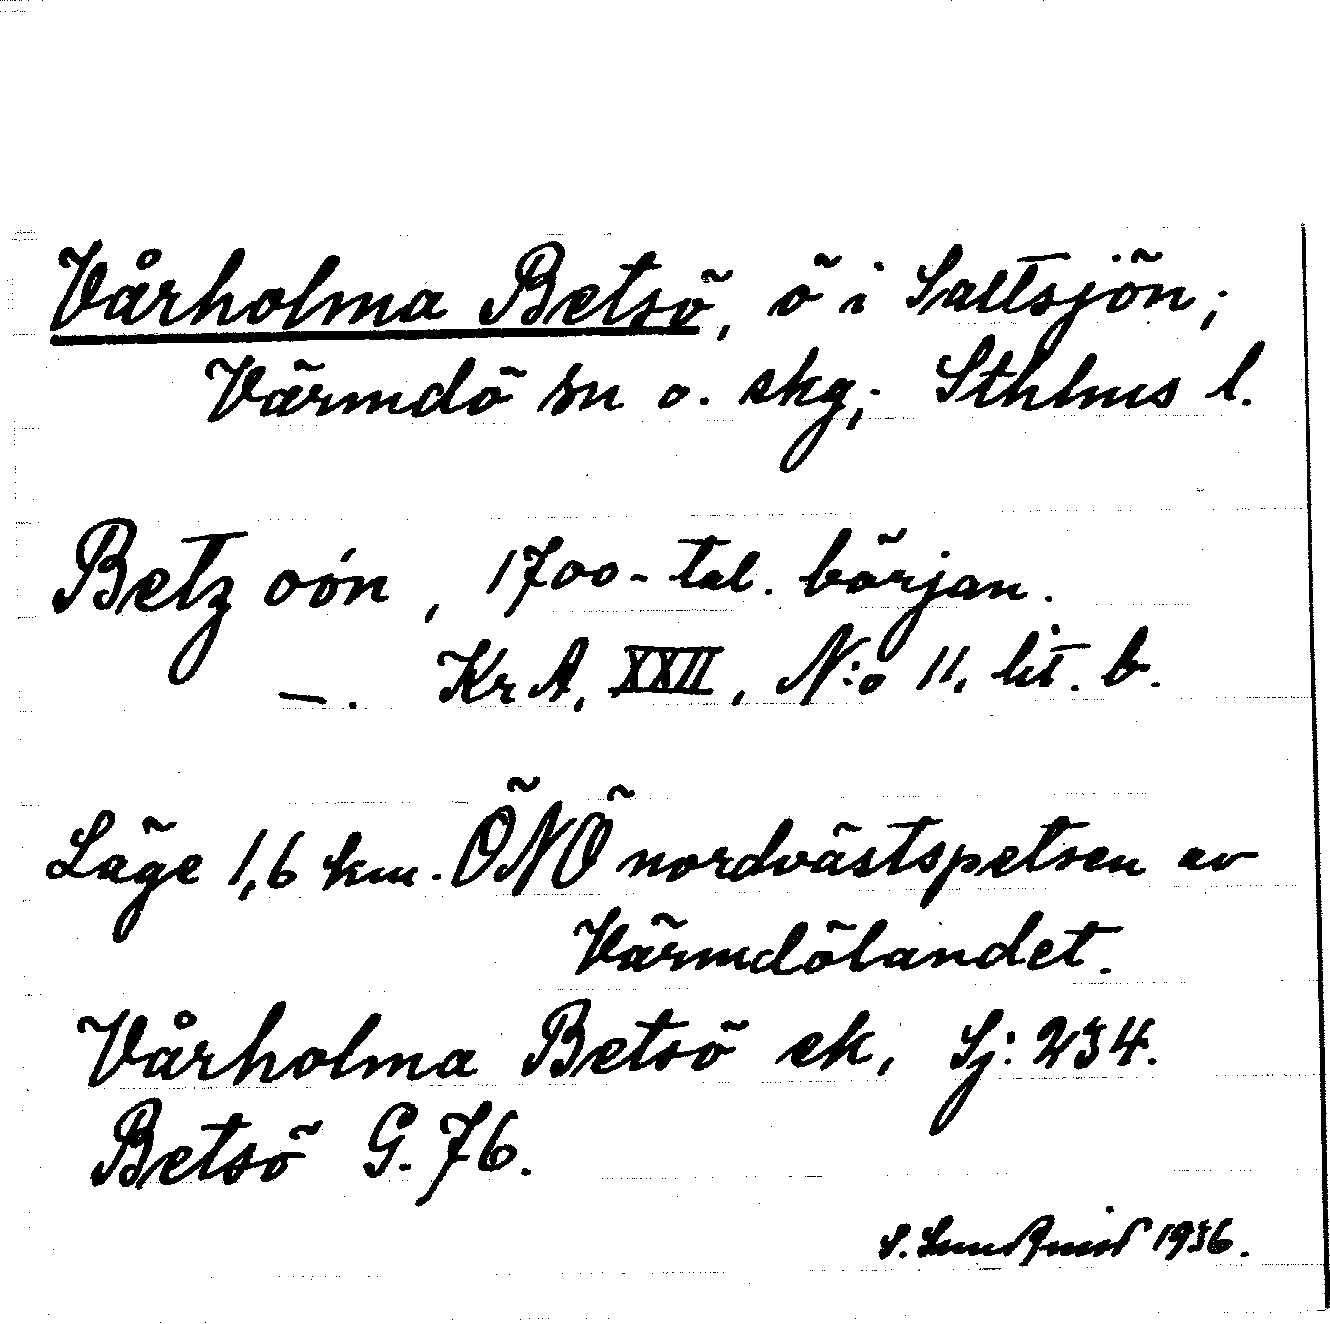 Vårholma Betsö, ö i Saltsjön;
Värmdö sn o. skg; Sthlms l.
Betz oón, 1700-tal. början.
—. Kr A, XXII, N:o 11, lit. b.
Läge 1,6 km. ÖNÖ nordvästspetsen av
Värmdölandet.
Vårholma Betsö ek, Sj: 234.
Betsö G. 76.
S. Sundqvist 1936.